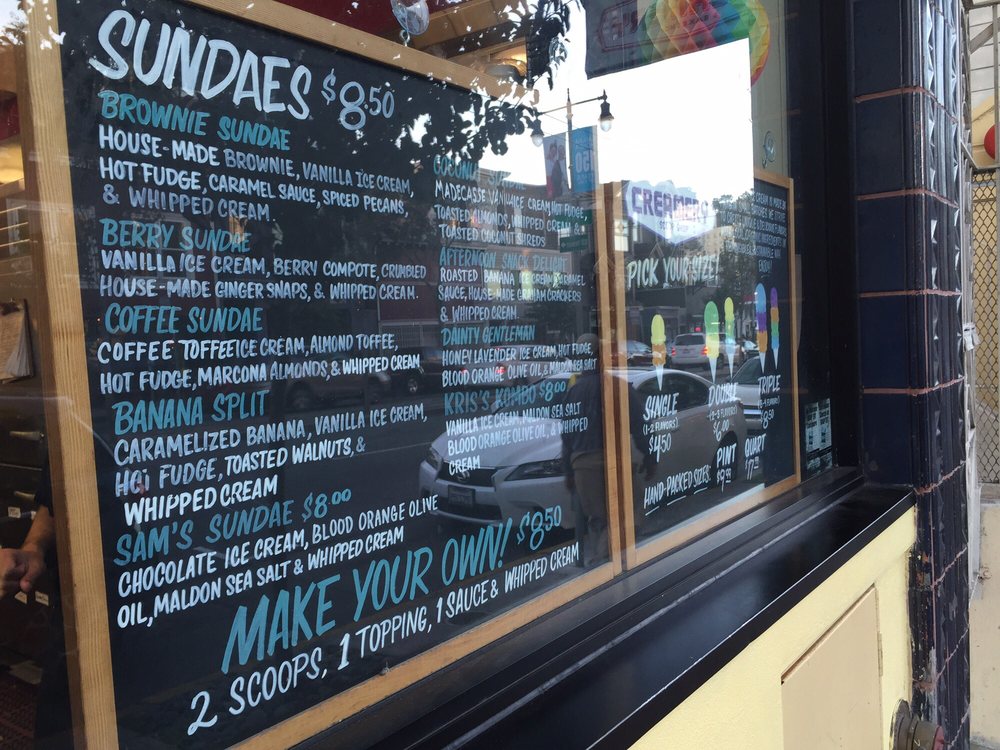 SUNDAES $8.50
BROWNIE SUNDAE
HOUSE-MADE BROWNIE, VANILLA ICE CREAM,
HOT FUDGE, CARAMEL SAUCE, SPICED PECANS,
& WHIPPED CREAM.
BERRY SUNDAE
VANILLA ICE CREAM, BERRY COMPOTE, CRUMBLED
HOUSE-MADE GINGER SNAPS, & WHIPPED CREAM.
COFFEE SUNDAE
COFFEE TOFFEE ICE CREAM, ALMOND TOFFEE,
HOT FUDGE, MARCONA ALMONDS, & WHIPPED CREAM
BANANA SPLIT
CARAMELIZED BANANA, VANILLA ICE CREAM,
HOT FUDGE, TOASTED WALNUTS, &
WHIPPED CREAM
SAM'S SUNDAE $8.00
CHOCOLATE ICE CREAM, BLOOD ORANGE OLIVE
OIL, MALDON SEA SALT & WHIPPED CREAM
COCONUT
MADECASSE VANILLA ICE CREAM, HOT FUDGE,
TOASTED ALMONDS, WHIPPED CREAM &
TOASTED COCONUT SHREDS
AFTERNOON SNACK DELIGHT
ROASTED BANANA ICE CREAM, CARAMEL
SAUCE, HOUSE-MADE GRAHAM CRACKERS
& WHIPPED CREAM
DAINTY GENTLEMAN
HONEY LAVENDER ICE CREAM, HOT FUDGE,
BLOOD ORANGE OLIVE OIL, & MALDON SEA SALT
KRIS'S KOMBO $8.00
VANILLA ICE CREAM, MALDON SEA SALT
BLOOD ORANGE OLIVE OIL, & WHIPPED
CREAM
MAKE YOUR OWN! $8.50
2 SCOOPS, 1 TOPPING, 1 SAUCE & WHIPPED CREAM
CREAMERY
PICK YOUR SIZE!
SINGLE
(1-2 FLAVORS)
$4.50
DOUBLE
(1-2 FLAVORS)
$6.00
TRIPLE
$8.50
HAND-PACKED SIZES:
PINT
QUART